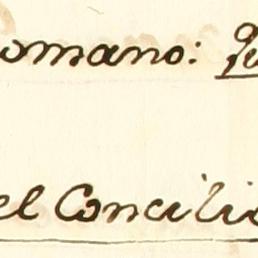 omano: Qu
el Concilio